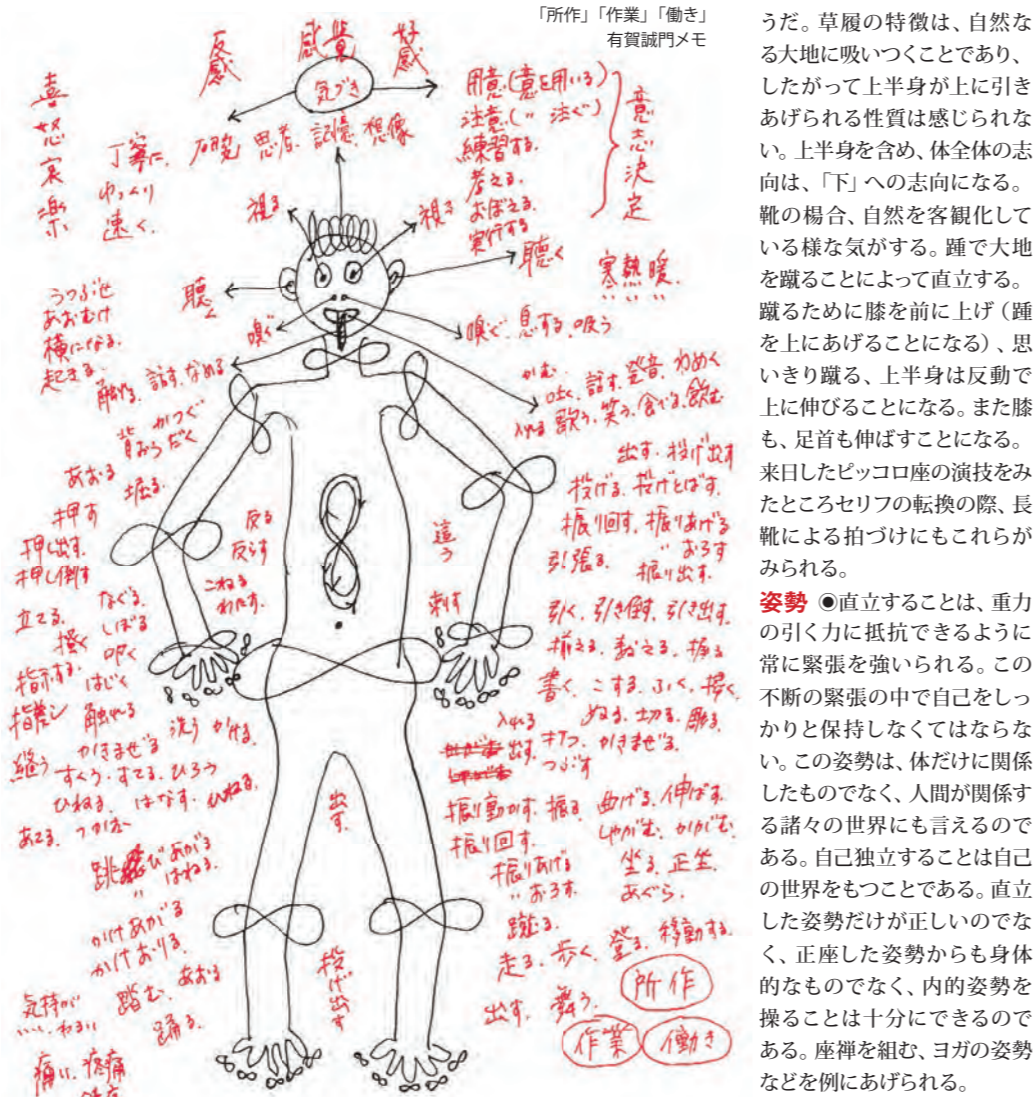 「所作」「作業」「働き」
有賀誠門メモ
反感
感覚
好感
気づき
喜怒哀楽
丁寧に、
ゆっくり
速く、
研究 思考、記憶、想像
用意(意を用いる)
注意(〃 注ぐ)
練習する、
考える、
おぼえる、
実行する
意志決定
視る
視る
聴く
聴く
寒熱暖、
うつぶせ
あおむけ
横になる、
起きる、
嗅ぐ
嗅ぐ、息する、吸う
触れる、話す、なめる
かむ、
吐く、話す、発音、わめく
入れる 歌う、笑う、食べる、飲む
かつぐ
背おう だく
あおる
堀る、
押す
押し出す、
押し倒す
反る
反らす
這う
出す、投げ出す
投げる、投げとばす、
振り回す、振りあげる
〃 おろす
引張る、
振り出す、
こねる
わたす、
刺す
なぐる
立てる、
しぼる
掻く
叩く
指示する、
はじく
指差し
触れる
引く、引き倒す、引き出す、
揃える、
書く、こする、ふく、掃く、
ぬる、切る、彫る、
入れる
出す、打つ、かきまぜる、
つぶす
縫う
かきまぜる
洗う かける、
すくう、すてる、ひろう
ひねる、はなす、ひねる、
あてる、
出す、
振り動かす、振る、曲げる、伸ばす、
しゃがむ、かがむ、
振り回す、
振りあげる
〃 おろす、
坐る、正坐、
あぐら、
跳びあがる
〃 はねる、
かけあがる
かけおりる、
蹴る、
走る、歩く、登る、移動する、
あおる
踏む、
踊る、
投げ出す
出す、舞う、
所作
作業
働き
気持が
いい、わるい
痛い、疼痛
うだ。草履の特徴は、自然な
る大地に吸いつくことであり、
したがって上半身が上に引き
あげられる性質は感じられな
い。上半身を含め、体全体の志
向は、「下」への志向になる。
靴の楊合、自然を客観化して
いる様な気がする。踵で大地
を蹴ることによって直立する。
蹴るために膝を前に上げ（踵
を上にあげることになる）、思
いきり蹴る、上半身は反動で
上に伸びることになる。また膝
も、足首も伸ばすことになる。
来日したピッコロ座の演技をみ
たところセリフの転換の際、長
靴による拍づけにもこれらが
みられる。
姿勢 ◉直立することは、重力
の引く力に抵抗できるように
常に緊張を強いられる。この
不断の緊張の中で自己をしっ
かりと保持しなくてはならな
い。この姿勢は、体だけに関係
したものでなく、人間が関係す
る諸々の世界にも言えるので
ある。自己独立することは自己
の世界をもつことである。直立
した姿勢だけが正しいのでな
く、正座した姿勢からも身体
的なものでなく、内的姿勢を
操ることは十分にできるので
ある。座禅を組む、ヨガの姿勢
などを例にあげられる。